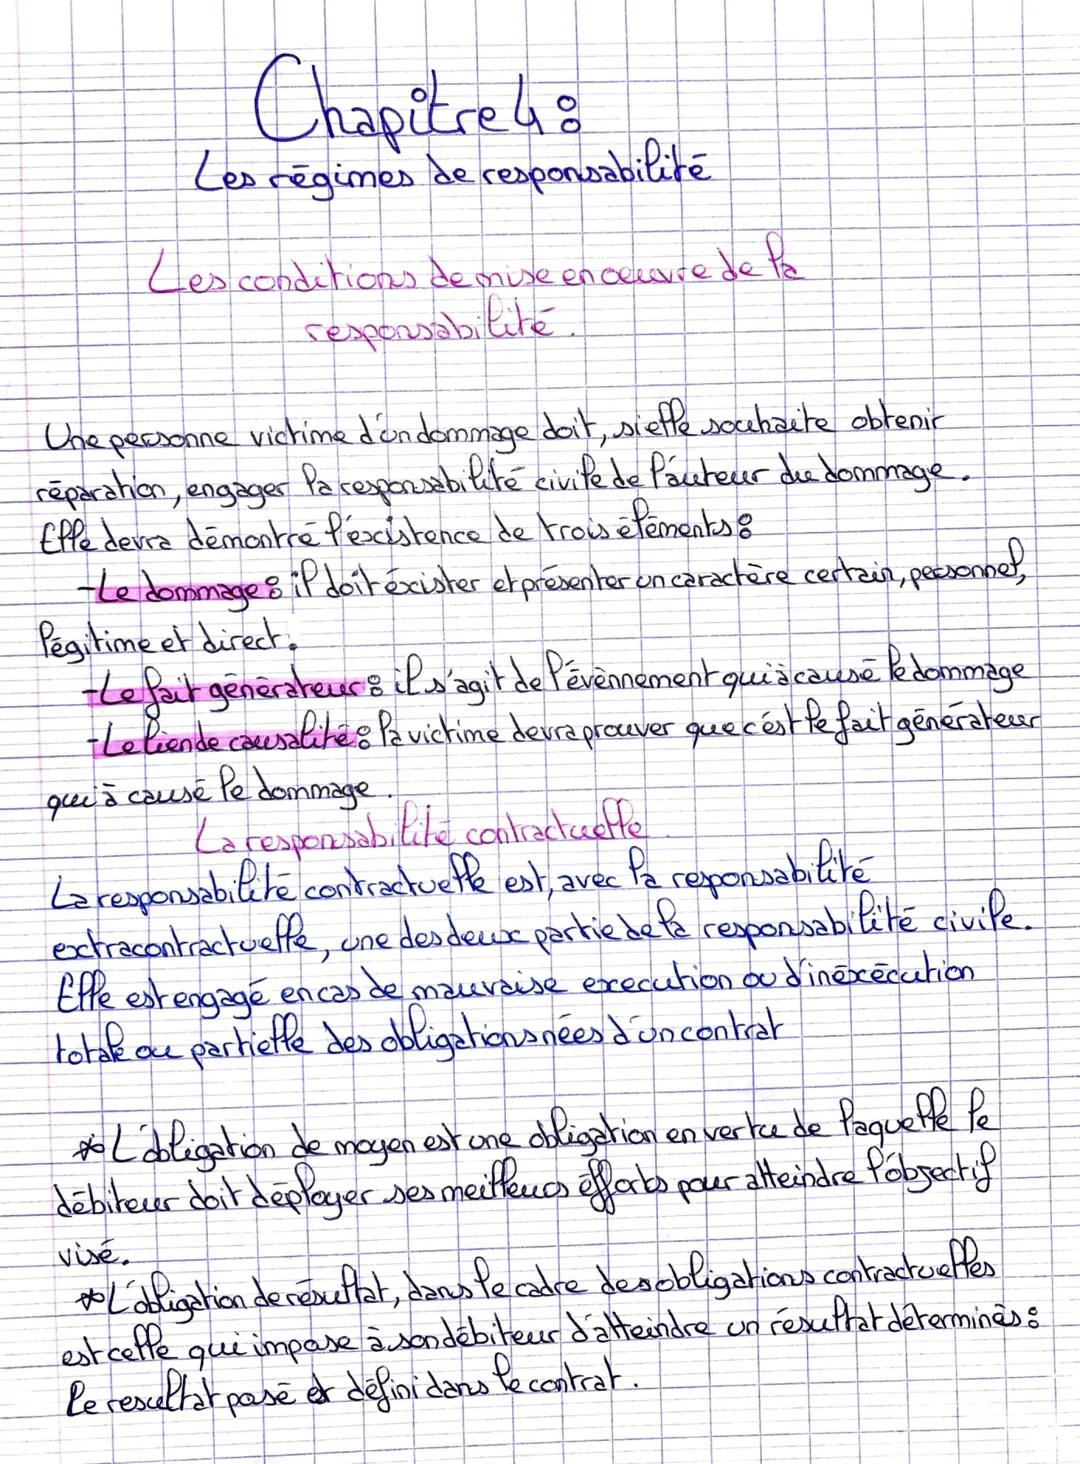 Chapitre 4 :
Les régimes de responsabilité
Les conditions de mise en oeuvre de la
responsabilité.
Une personne victime d'un dommage doit, si elle souhaite obtenir
réparation, engager la responsabilité civile de l'auteur du dommage.
Elle devra démontré l'existence de trois éléments :
-Le dommage : il doit éxister et présenter un caractère certain, personnel,
légitime et direct.
-Le fait générateur : il s'agit de l'évènnement qui à causé le dommage
-Le lien de causalité : la victime devra prouver que c'est le fait générateur
qui à causé le dommage.
La responsabilité contractuelle
La responsabilité contractuelle est, avec la responsabilité
extracontractuelle, une des deux partie de la responsabilité civile.
Elle est engagé en cas de mauvaise execution ou d'inéxécution
totale ou partielle des obligations nées d'un contrat
* L'obligation de moyen est une obligation en vertu de laquelle le
débiteur doit déployer ses meilleurs éfforts pour atteindre l'objectif
visé.
* L'obligation de résultat, dans le cadre des obligations contractuelles
est celle qui impose à son débiteur d'atteindre un résultat déterminés :
le resultat posé et défini dans le contrat.